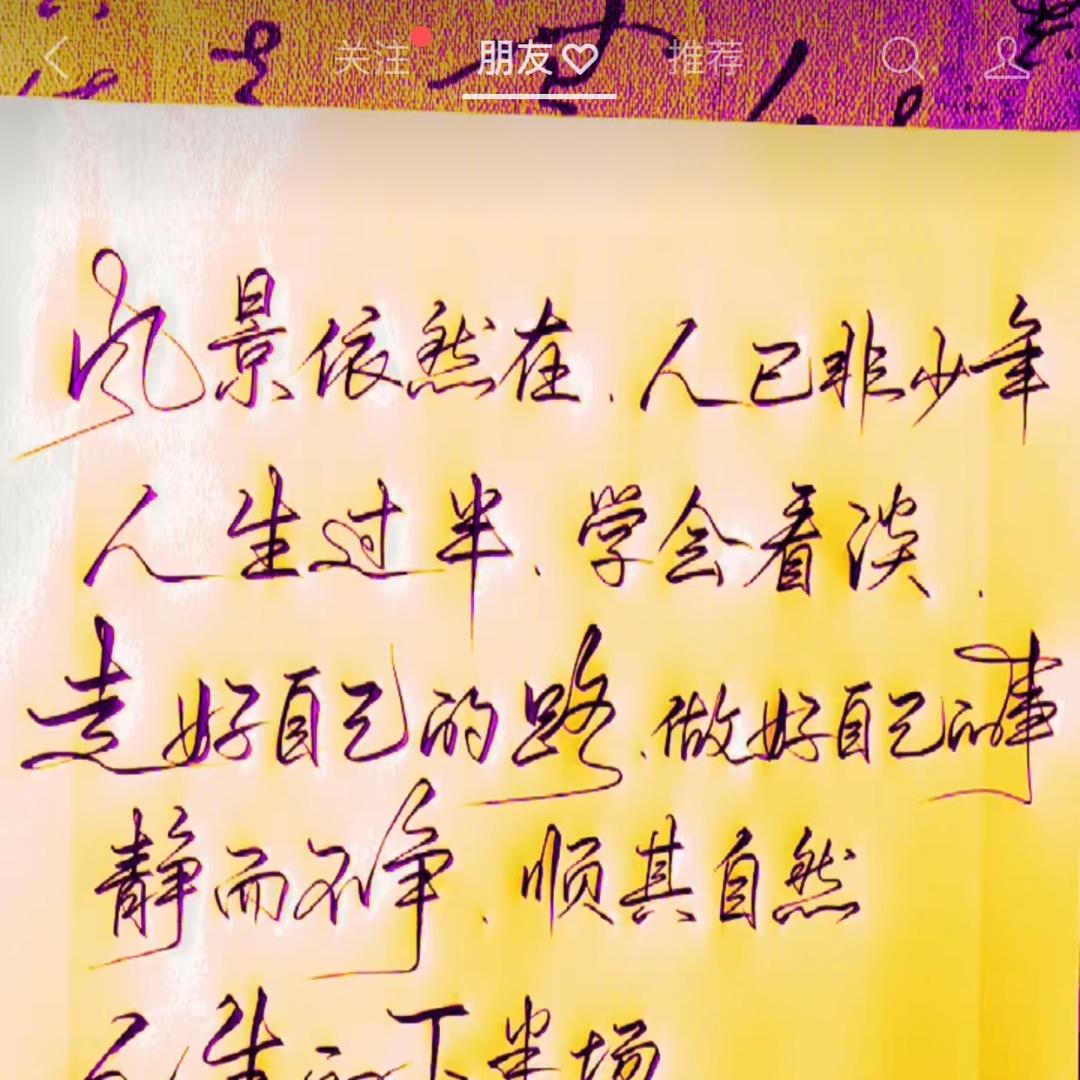 关注 朋友♡ 推荐
风景依然在.人已非少年
人生过半.学会看淡.
走好自己的路.做好自己的事
静而不争.顺其自然
人生的下半场